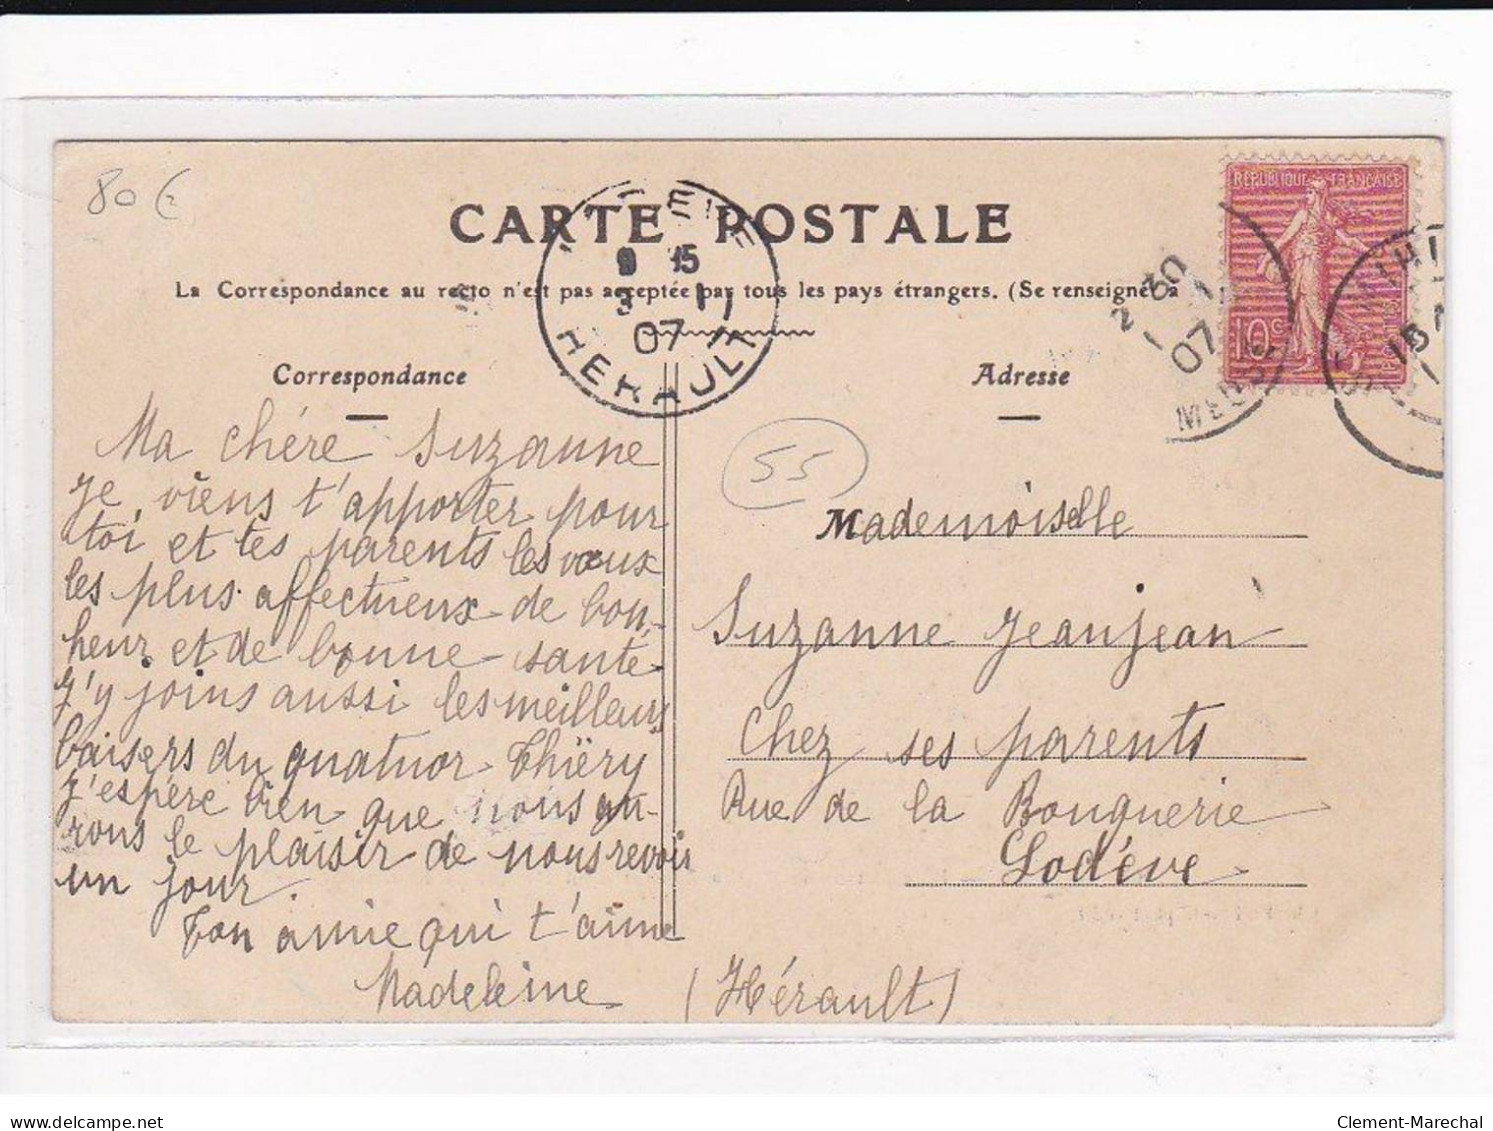 80 €
CARTE POSTALE
La Correspondance au recto n'est pas acceptée par tous les pays étrangers. (Se renseigner à
REPUBLIQUE FRANÇAISE
10c
9 15
3 1
07
HERAULT
2 30
1
07
MEUSE
15
Correspondance
Ma chére Suzanne
Je viens t'apporter pour
toi et tes parents les vœux
les plus affectueux de bon-
heur et de bonne santé
J'y joins aussi les meilleurs
baisers du quatuor Thiëry
J'espère bien que nous au-
rons le plaisir de nous revoir
un jour.
Ton amie qui t'aime
Madeleine
Adresse
55
Mademoiselle
Suzanne Jeanjean
Chez ses parents
Rue de la Bouquerie
Lodève
(Hérault)
delcampe.net
Clement-Marechal